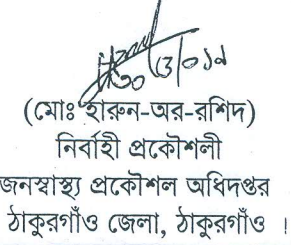 (মোঃ হারুন-অর-রশিদ)
নির্বাহী প্রকৌশলী
জনস্বাস্থ্য প্রকৌশল অধিদপ্তর
ঠাকুরগাঁও জেলা, ঠাকুরগাঁও ।